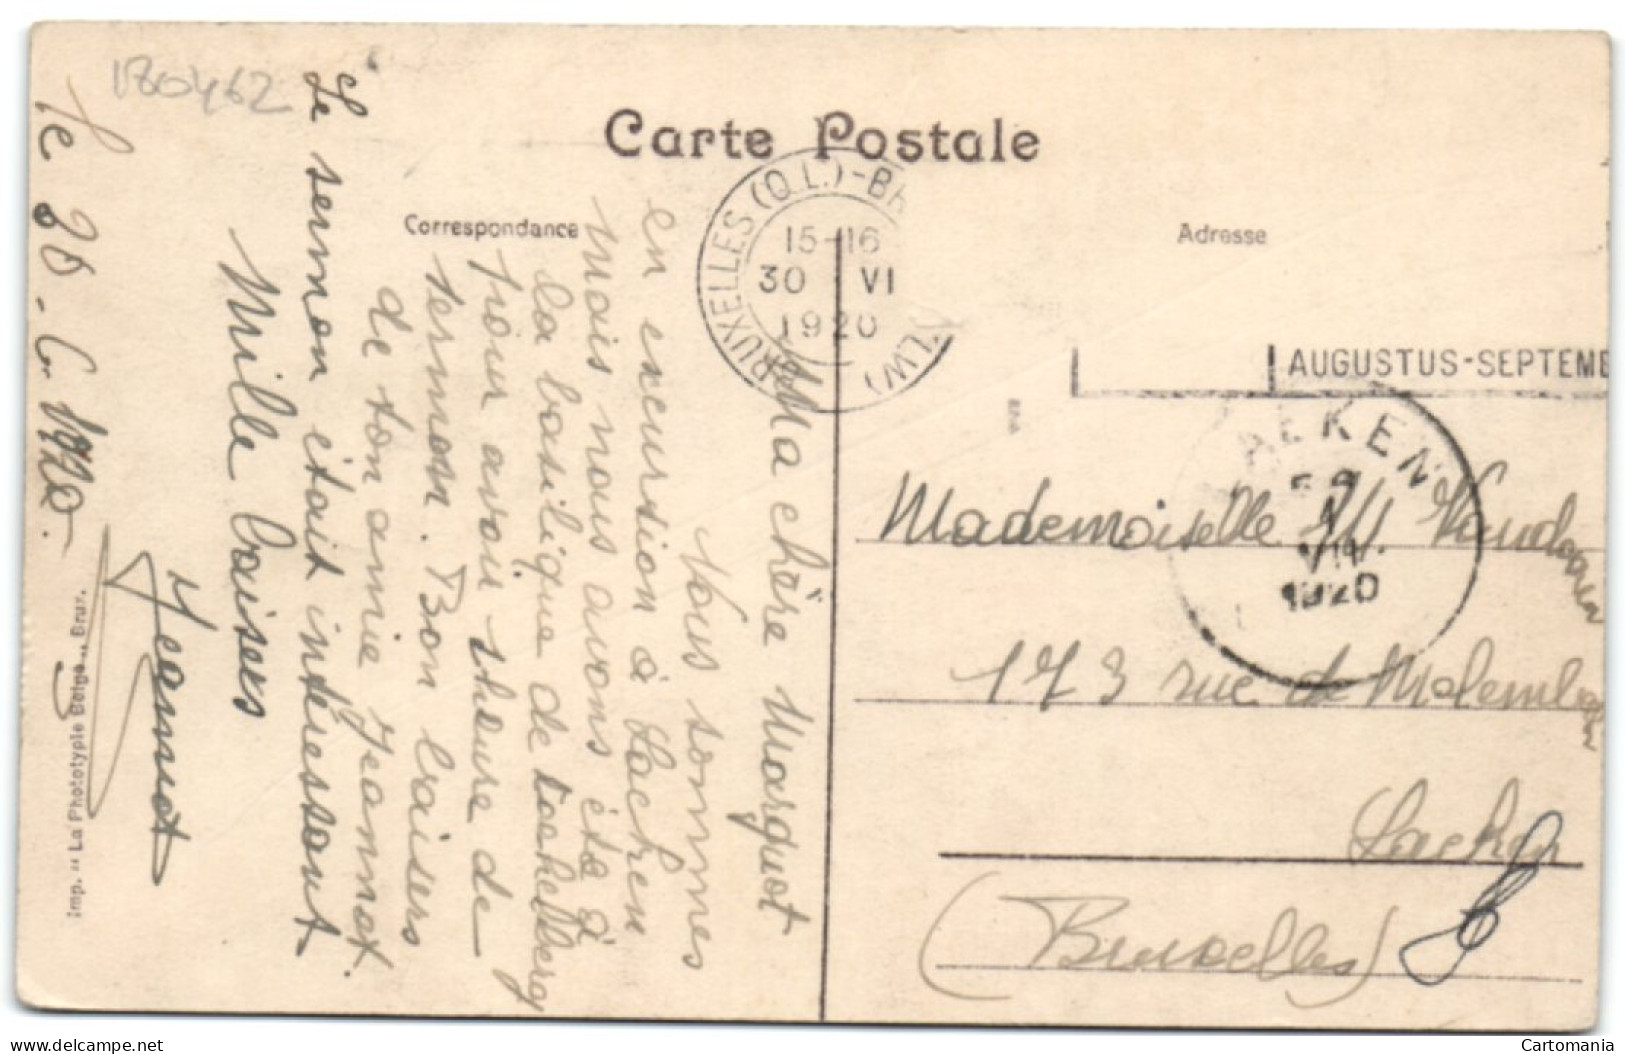 180462
Carte Postale
Correspondance
Adresse
BRUXELLES (Q.L.)-BR
15-16
30 VI
1920
LW)
AUGUSTUS-SEPTEMB
AEKEN
1920
Ma chère Marguot
Nous sommes
en excursion à Lachen
Mais nous avons été à
la basilique de Koekelberg
pour avoir 1 heure de
sermon. Bon baisers
de ton amie Jeannot.
Le sermon était intéressant
Mille baisers
Jeannot
le 30-6-1920.
Mademoiselle M
173 rue de Molem
Laeken
(Bruxelles)
Imp. "La Phototypie Belge", Brux.
Cartomania
delcampe.net